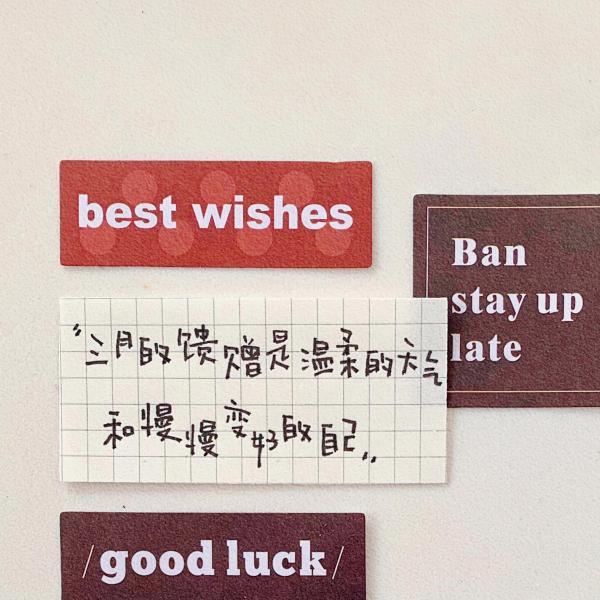 best wishes
Ban
stay up
late
"三月的馈赠是温柔的天气
和慢慢变好的自己"
/good luck/